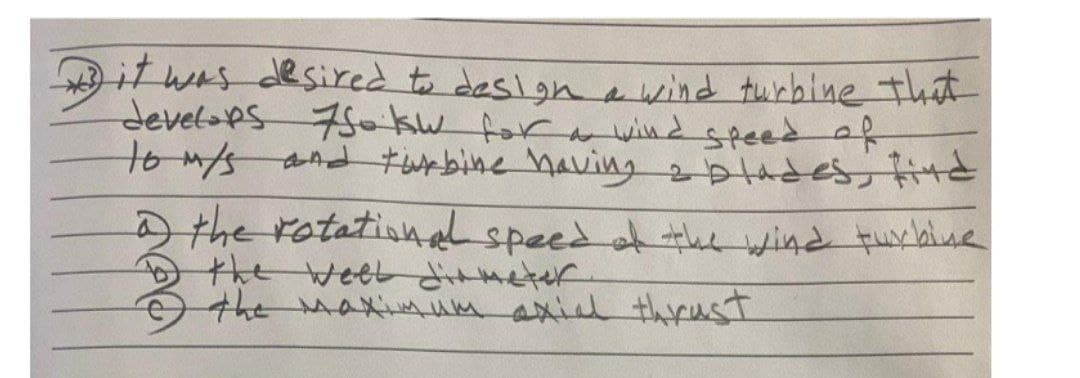 *3) it was desired to design a wind turbine that
develops 750 kw for a wind speed of
10 m/s and turbine having 2 blades, find
a) the rotational speed of the wind turbine
b) the weel diameter.
c) the maximum axial thrust